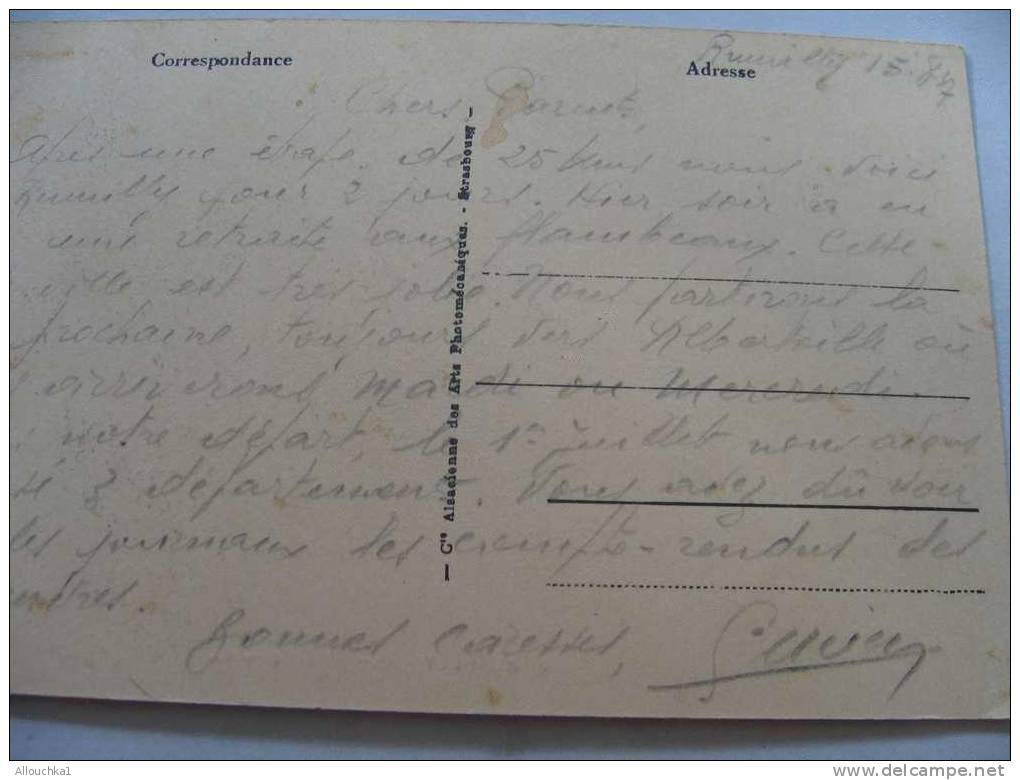 Correspondance
Adresse
Rumilly 15
Chers Parents,
une étape de 25 kms nous voici
Rumilly pour 2 jours. Hier soir a eu
une retraite aux flambeaux. Cette
ville est très jolie. Nous partirons la
prochaine, toujours vers Albertville où
arriverons mardi ou Mercredi.
notre départ, le 1er juillet nous avons
3 département. Vous avez dû voir
les journaux les compte-rendus des
Bonnes caresses,
— Cie Alsacienne des Arts Photomécaniques. - Strasbourg —
Allouchka1
www.delcampe.net